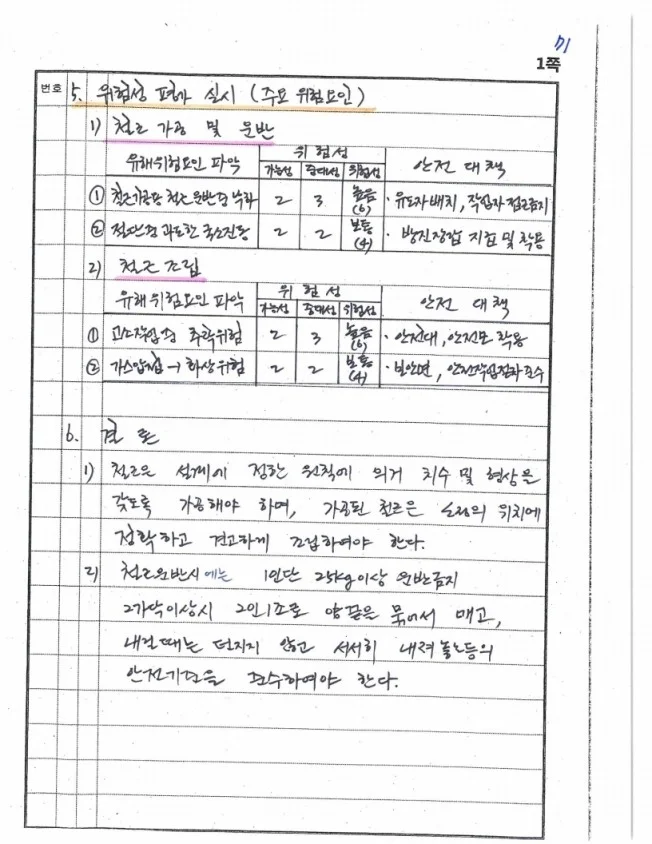 71
1쪽
번호 5. 위험성 평가 실시 (주요 위험요인)
1) 철근 가공 및 운반
유해위험요인 파악 위험성 안전 대책
가능성 중대성 위험성
① 철근가공장 철근운반중 낙하 2 3 높음 (6) · 유도자배치, 작업자 접근금지
② 절단중 과도한 국소진동 2 2 보통 (4) · 방진장갑 지급 및 착용
2) 철근 조립
유해위험요인 파악 위험성 안전 대책
가능성 중대성 위험성
① 고소작업중 추락위험 2 3 높음 (6) · 안전대, 안전모 착용
② 가스압접 → 화상위험 2 2 보통 (4) · 보안면, 안전작업절차 준수
6. 결론
1) 철근은 설계에 정한 원칙에 의거 치수 및 형상을
갖도록 가공해야 하며, 가공된 철근은 소정의 위치에
정확하고 견고하게 조립하여야 한다.
2) 철근운반시에는 1인당 25kg이상 운반금지
2가닥이상시 2인1조로 양끝을 묶어서 매고,
내릴때는 던지지 않고 서서히 내려놓는등의
안전기준을 준수하여야 한다.